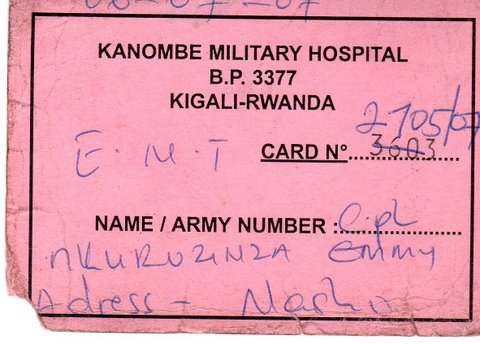 KANOMBE MILITARY HOSPITAL
B.P. 3377
KIGALI-RWANDA
2105/07
E.M.T CARD N° 3603
NAME / ARMY NUMBER : Cpl
NKURUZINZA Emmy
Adress -